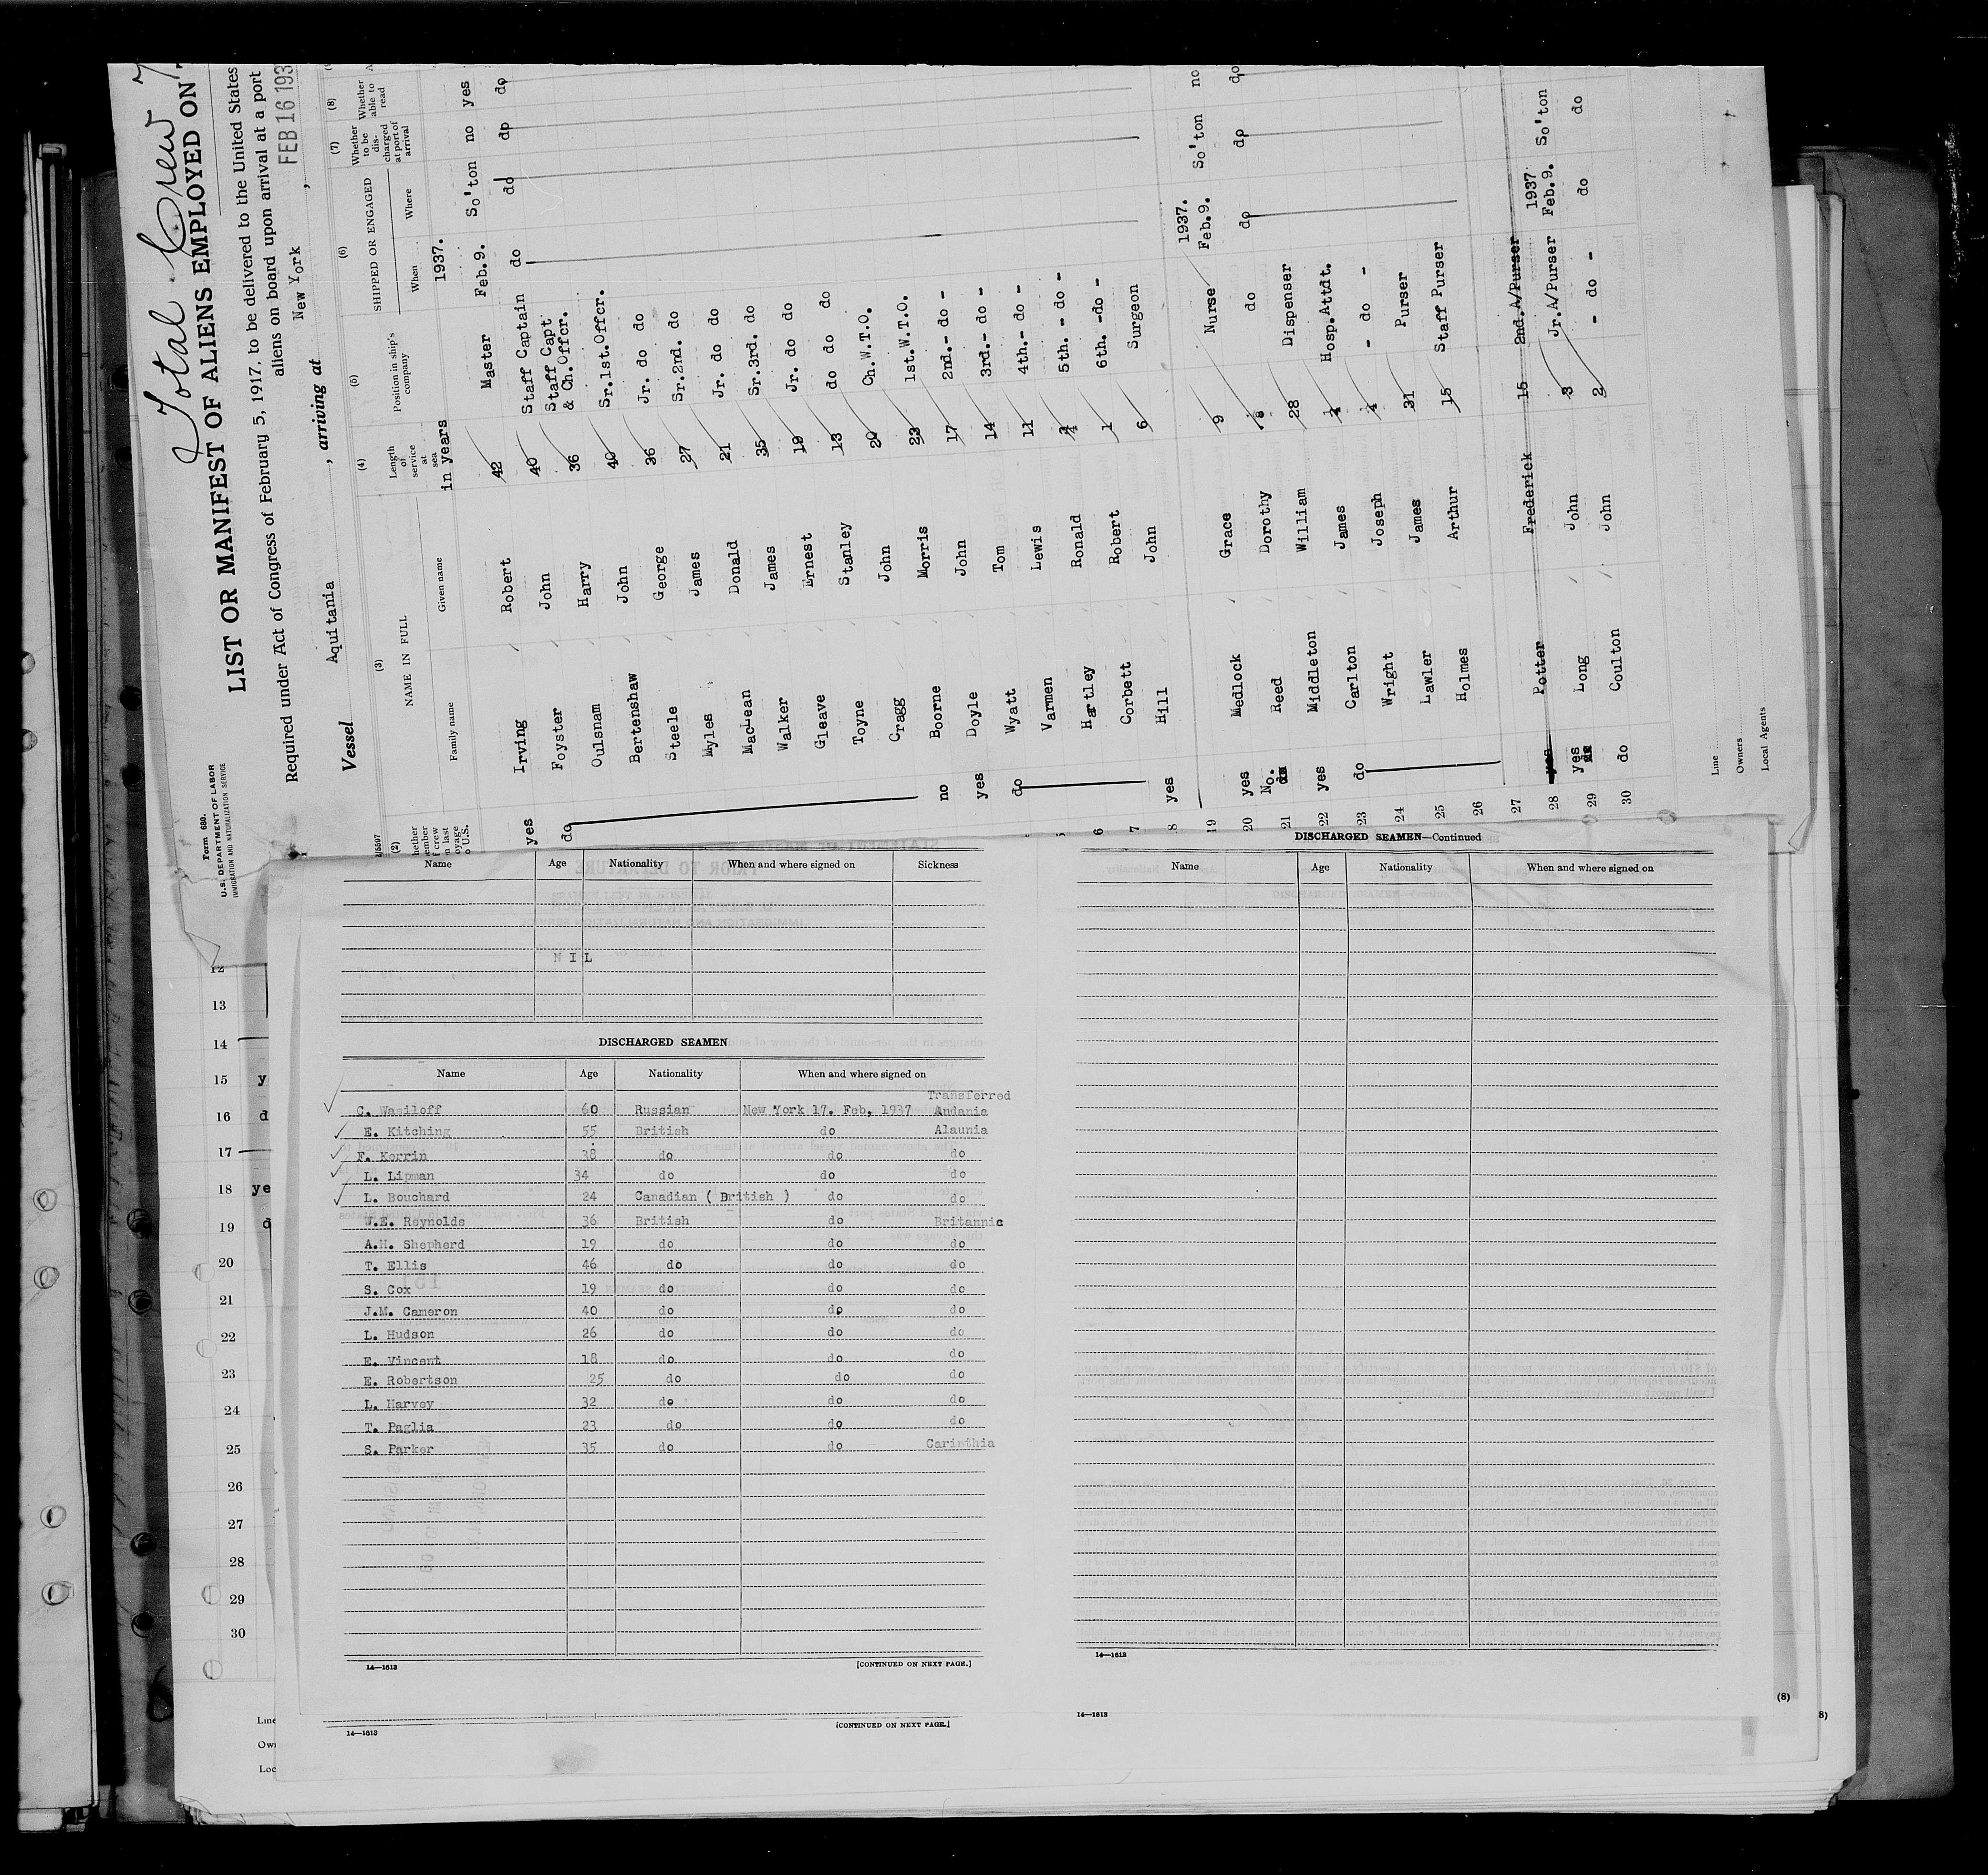 Total Crew
Form 680.
U.S. DEPARTMENT OF LABOR
IMMIGRATION AND NATURALIZATION SERVICE
LIST OR MANIFEST OF ALIENS EMPLOYED ON
Required under Act of Congress of February 5, 1917, to be delivered to the United States
aliens on board upon arrival at a port
Vessel Aquitania, arriving at New York, FEB 16 193
(2) (3) (4) (5) (6) (7) (8)
hether ember crew n last oyage o U.S.
NAME IN FULL
Family name Given name
Length of service at sea in years
Position in ship's company
SHIPPED OR ENGAGED
When Where
Whether to be dis-charged at port of arrival
Whether able to read
1937.
yes Irving Robert 42 Master Feb.9. So'ton no yes
do Foyster John 40 Staff Captain do do do do
Oulsnam Harry 36 Staff Capt & Ch.Offcr.
Bertenshaw John 40 Sr.1st.Offcr.
Steele George 36 Jr. do do
Myles James 27 Sr.2nd. do
MacLean Donald 21 Jr. do do
Walker James 35 Sr.3rd. do
Gleave Ernest 19 Jr. do do
Toyne Stanley 13 do do do
Cragg John 20 Ch.W.T.O.
no Boorne Morris 23 1st.W.T.O.
yes Doyle John 17 2nd.- do -
do Wyatt Tom 14 3rd.- do -
Varmen Lewis 11 4th.- do -
Hartley Ronald 4 5th. - do -
Corbett Robert 1 6th. -do -
yes Hill John 6 Surgeon
19
1937.
20 yes Medlock Grace 9 Nurse Feb.9. So'ton no
21 No. Reed Dorothy 8 do do do do
22 yes Middleton William 28 Dispenser
23 do Carlton James Hosp.Attdt.
24 Wright Joseph 4 - do -
25 Lawler James 31 Purser
26 Holmes Arthur 15 Staff Purser
27
28 yes Potter Frederick 15 2nd.A/Purser 1937
29 yes Long John 3 Jr.A/Purser Feb.9. So'ton
30 do Coulton John 2 - do - do do
Line
Owners
Local Agents
Name Age Nationality When and where signed on Sickness
NIL
DISCHARGED SEAMEN
Name Age Nationality When and where signed on
Transferred
C. Wasiloff 60 Russian New York 17. Feb, 1937 Andania
E. Kitching 55 British do Alaunia
F. Kerrin 38 do do do
L. Lipman 34 do do do
L. Bouchard 24 Canadian ( British ) do do
W.E. Reynolds 36 British do Britannic
A.H. Shepherd 19 do do do
T. Ellis 46 do do do
S. Cox 19 do do do
J.M. Cameron 40 do do do
L. Hudson 26 do do do
E. Vincent 18 do do do
E. Robertson 25 do do do
L. Harvey 32 do do do
T. Paglia 23 do do do
S. Parker 35 do do Carinthia
14—1613 [CONTINUED ON NEXT PAGE.]
14—1613 [CONTINUED ON NEXT PAGE.]
DISCHARGED SEAMEN—Continued
Name Age Nationality When and where signed on
14—1613
(8)
14—1613
8)
12
13
14
15 y
16 d
17
18 ye
19 d
20
21
22
23
24
25
26
27
28
29
30
Line
Own
Loc